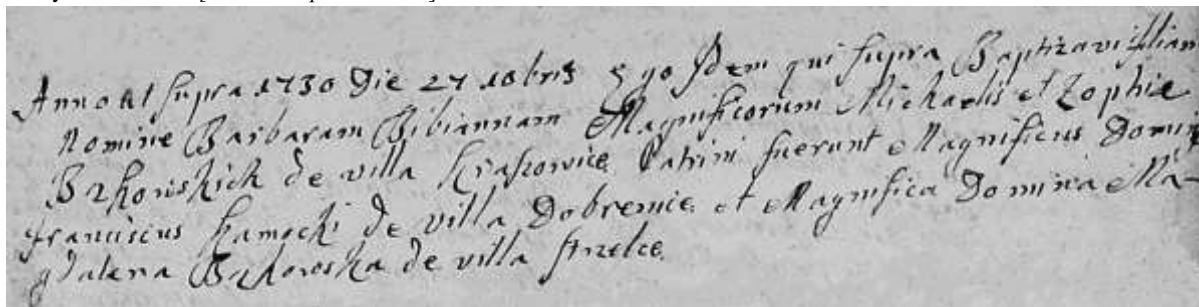 Anno ut supra 1730 Die 27 10bris Ego Idem qui supra Baptizavi filiam
Nomine Barbaram Bibiannam Magnificorum Michaelis et Zophie
Bzhorskich de villa Patrini fuerunt Magnificus Domin
Franciscus Kamocki de villa Dobremice et Magnifica Domina Ma-
gdalena de villa Strzelce